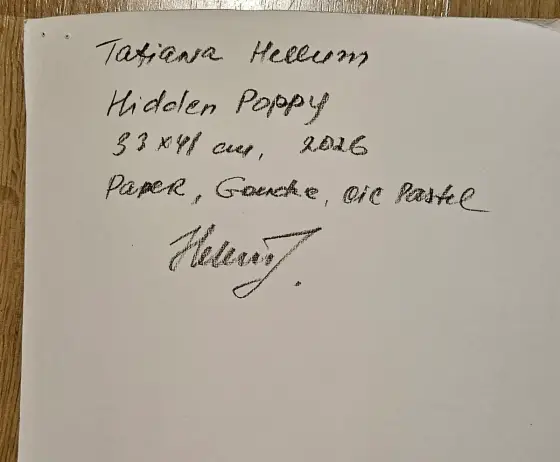 Tatiana Hellum
Hidden Poppy
33 x 41 cm, 2026
Paper, Gouache, oil Pastel